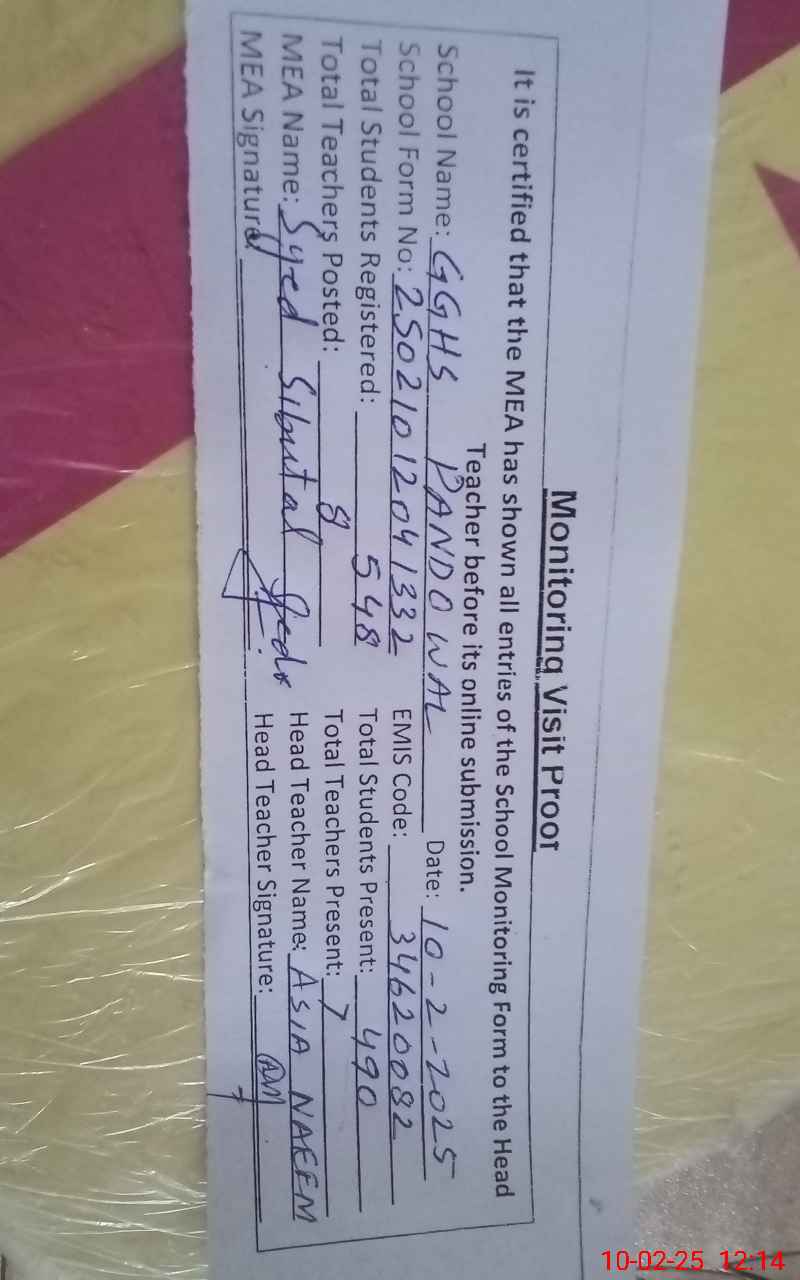 Monitoring Visit Proof
It is certified that the MEA has shown all entries of the School Monitoring Form to the Head
Teacher before its online submission.
School Name: GGHS PANDOWAL Date: 10-2-2025
School Form No: 25021012041332 EMIS Code: 34620082
Total Students Registered: 548 Total Students Present: 490
Total Teachers Posted: 8 Total Teachers Present: 7
MEA Name: Syed Sibutal Head Teacher Name: ASIA NAEEM
MEA Signature: Head Teacher Signature:
10-02-25 12:14